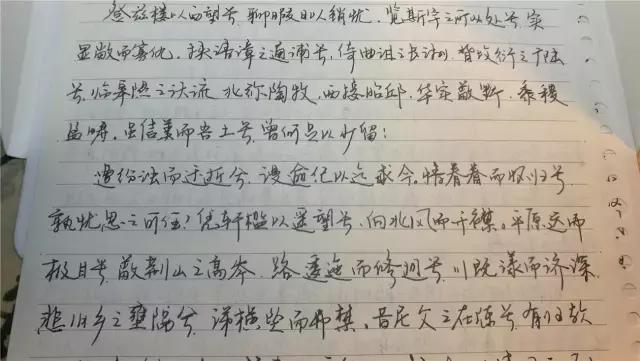 登兹楼以四望兮 聊暇日以销忧. 览斯宇之所以处兮 实
显敞而寡仇. 挟清漳之通浦兮, 倚曲沮之长洲. 背坟衍之广陆
兮, 临皋隰之沃流. 北弥陶牧, 西接昭邱. 华实蔽野, 黍稷
盈畴. 虽信美而吾土兮, 曾何足以少留!
遭纷浊而迁逝兮, 漫逾纪以迄今. 情眷眷而怀归兮
孰忧思之可任? 凭轩槛以遥望兮, 向北风而开襟. 平原远而
极目兮, 蔽荆山之高岑. 路逶迤而修迥兮, 川既漾而济深.
悲旧乡之壅隔兮, 涕横坠而弗禁. 昔尼父之在陈兮 有归欤